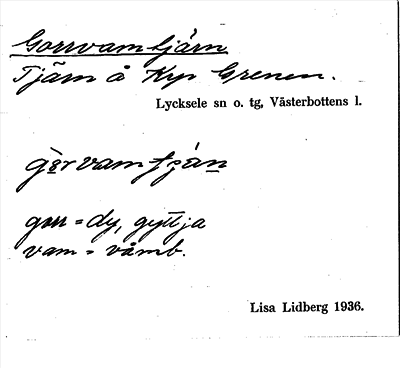 Gorrvamtjärn
Tjärn å Kyr Grenen.
Lycksele sn o. tg, Västerbottens l.
görvamtjän
gorr = dy, gyttja
vam = våmb.
Lisa Lidberg 1936.